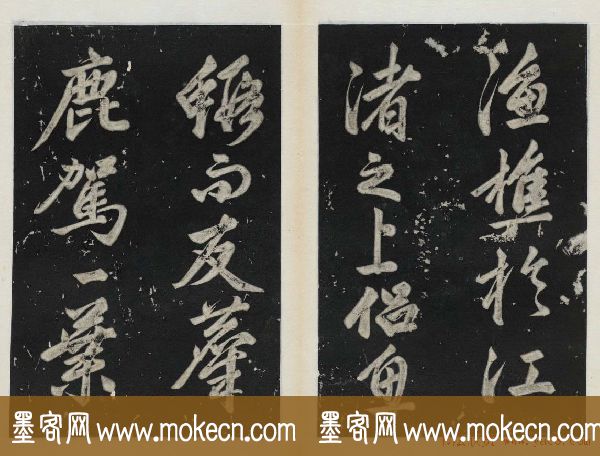 漁樵於江
渚之上侶魚
蝦而友麋
鹿駕一葉
墨客网 www.mokecn.com
墨客网 www.mokecn.com